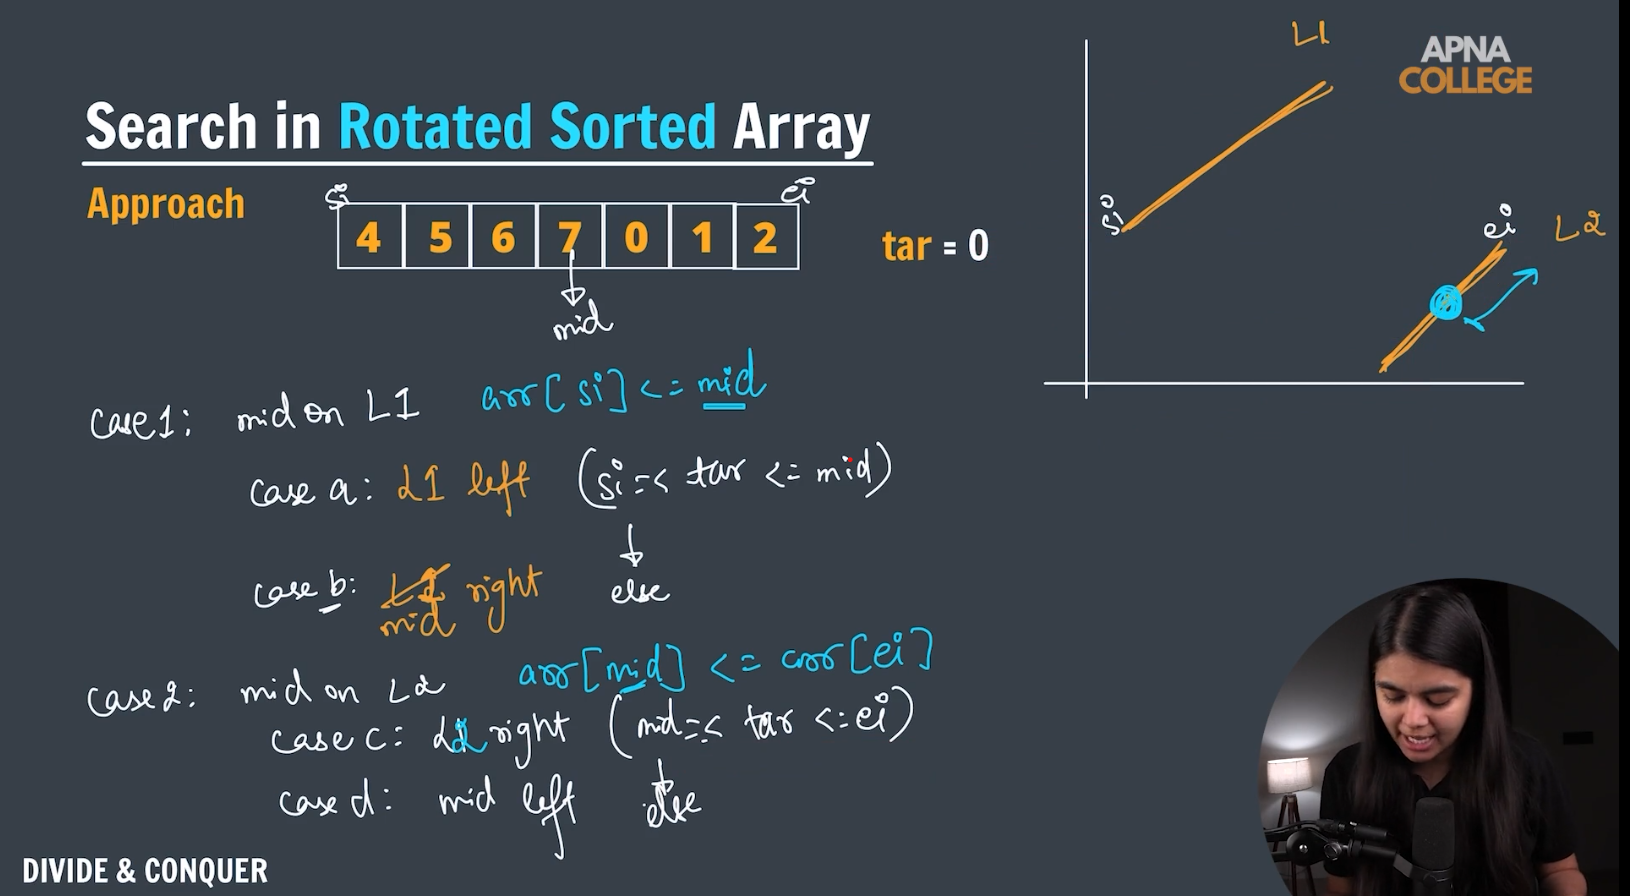 L1
APNA
COLLEGE
Search in Rotated Sorted Array
Approach
si
ei
4 5 6 7 0 1 2
tar = 0
mid
si
ei
L2
case1: mid on L1 arr[si] <= mid
case a: L1 left (si =< tar <= mid)
case b: mid right else
case2: mid on L2 arr[mid] <= arr[ei]
case c: L2 right (mid =< tar <= ei)
case d: mid left else
DIVIDE & CONQUER